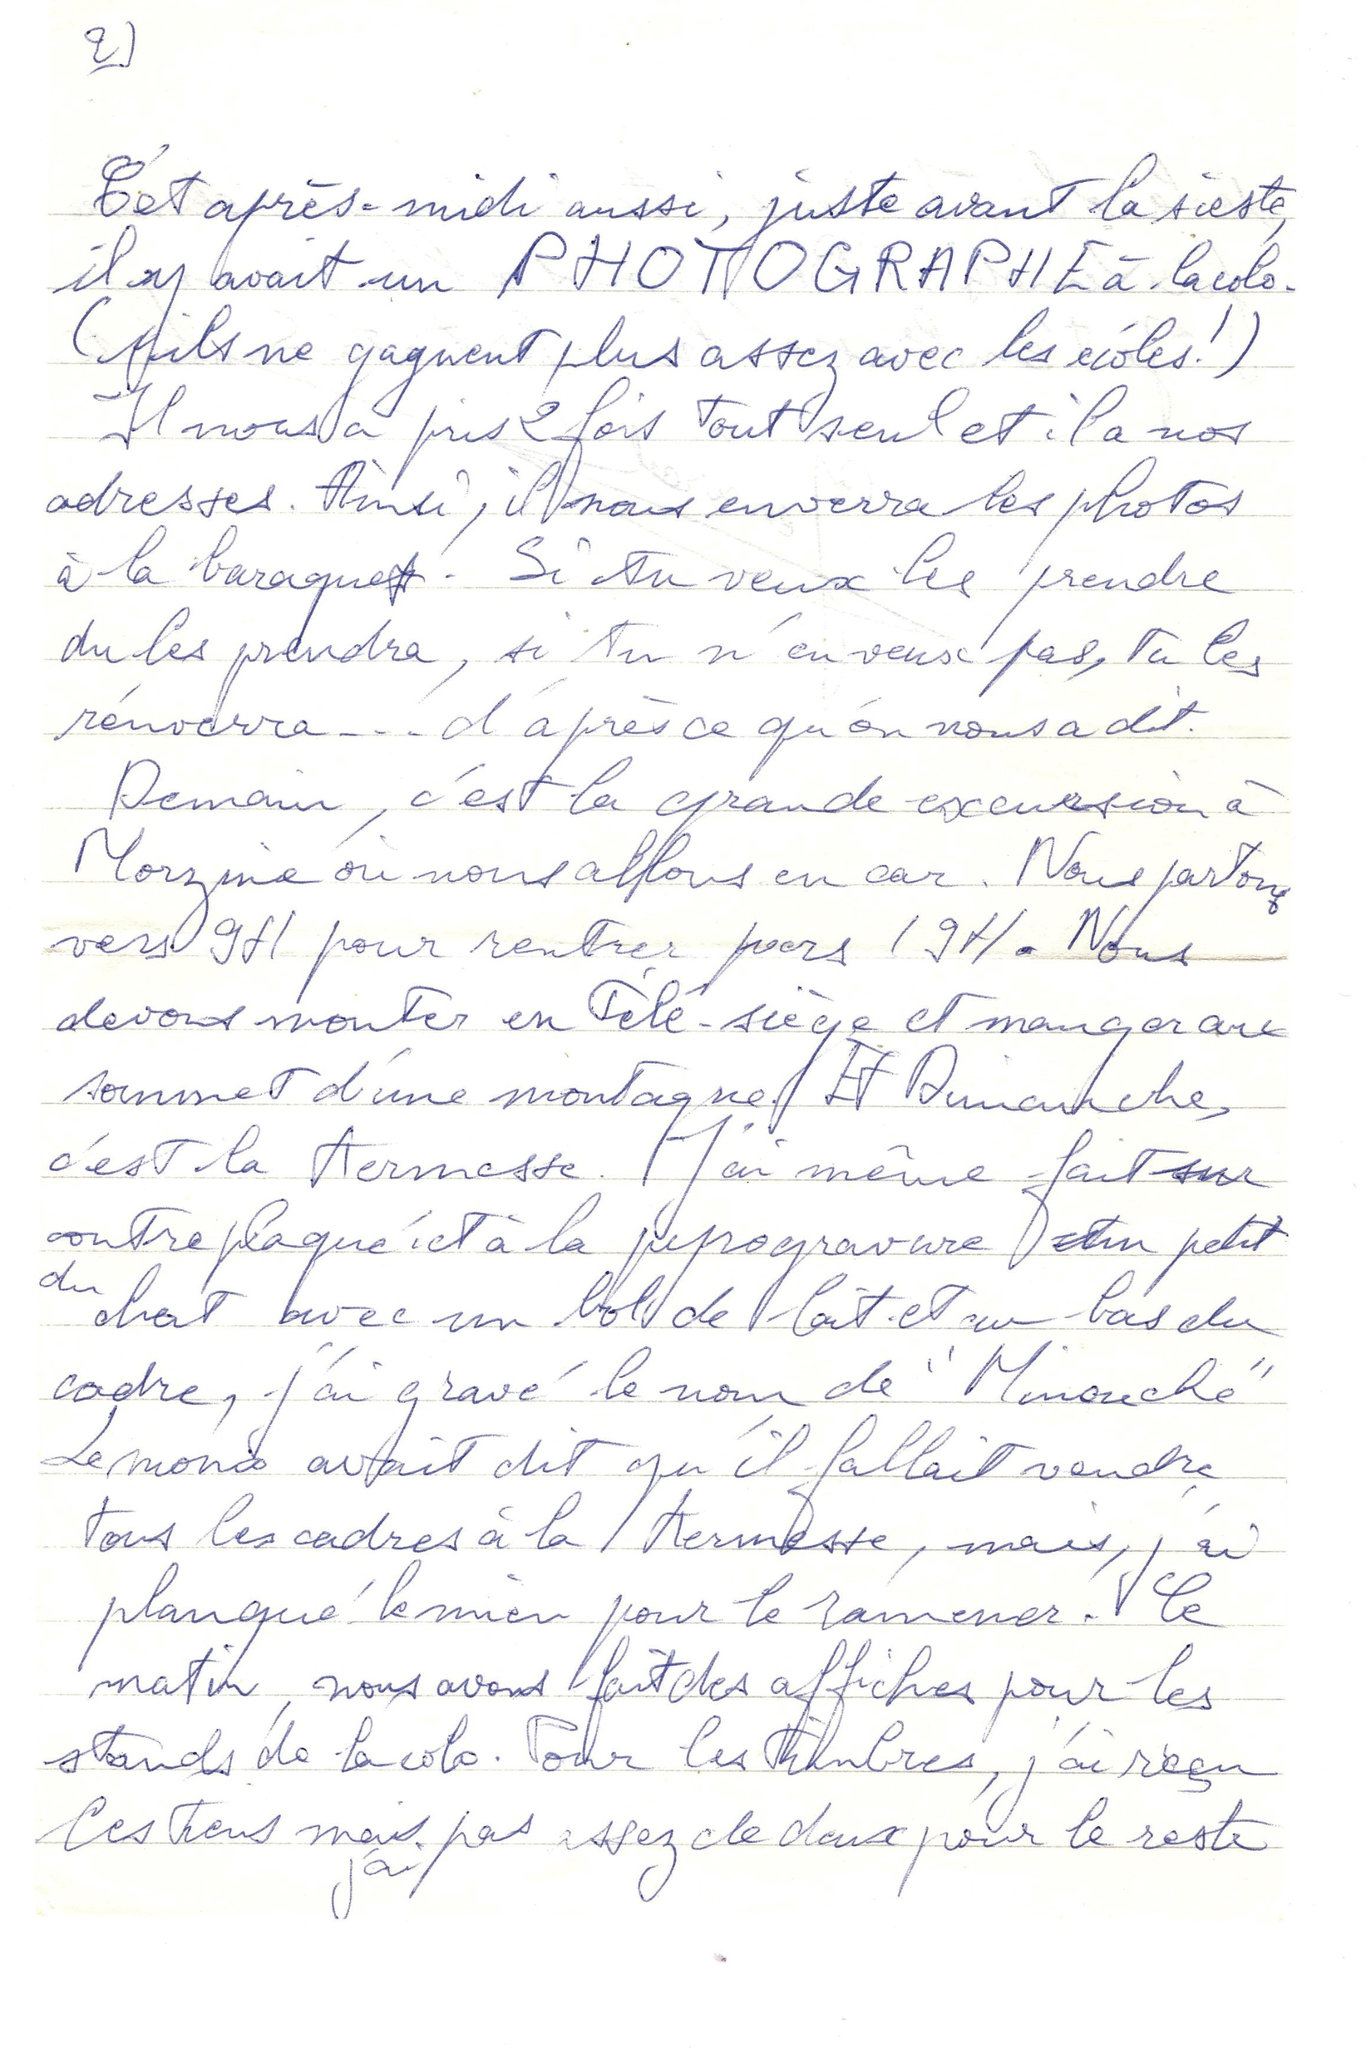 2)
Cet après-midi aussi, juste avant la sieste,
il y avait un PHOTOGRAPHE à la colo.
(ils ne gagnent plus assez avec les écoles!)
Il nous a pris 2 fois tout seul et il a nos
adresses. Ainsi, il nous enverra les photos
à la baraque. Si tu veux les prendre
du les prendra, si tu n'en veux pas, tu les
renverra... d'après ce qu'on nous a dit.
Demain, c'est la grande excursion à
Morzine où nous allons en car. Nous partons
vers 9H pour rentrer vers 19H. Nous
devons monter en Télé-siège et manger au
sommet d'une montagne. Et Dimanche,
c'est la kermesse. J'ai même fait sur
contreplaqué et à la pyrogravure un petit
du
chat avec un bol de lait et au bas du
cadre, j'ai gravé le nom de "Minouche"
Le mono avait dit qu'il fallait vendre
tous les cadres à la kermesse, mais, j'ai
planqué le mien pour le ramener. Ce
matin, nous avons fait des affiches pour les
stands de la colo. Pour les timbres, j'ai reçu
les tiens mais pas assez de deux pour le reste
j'ai